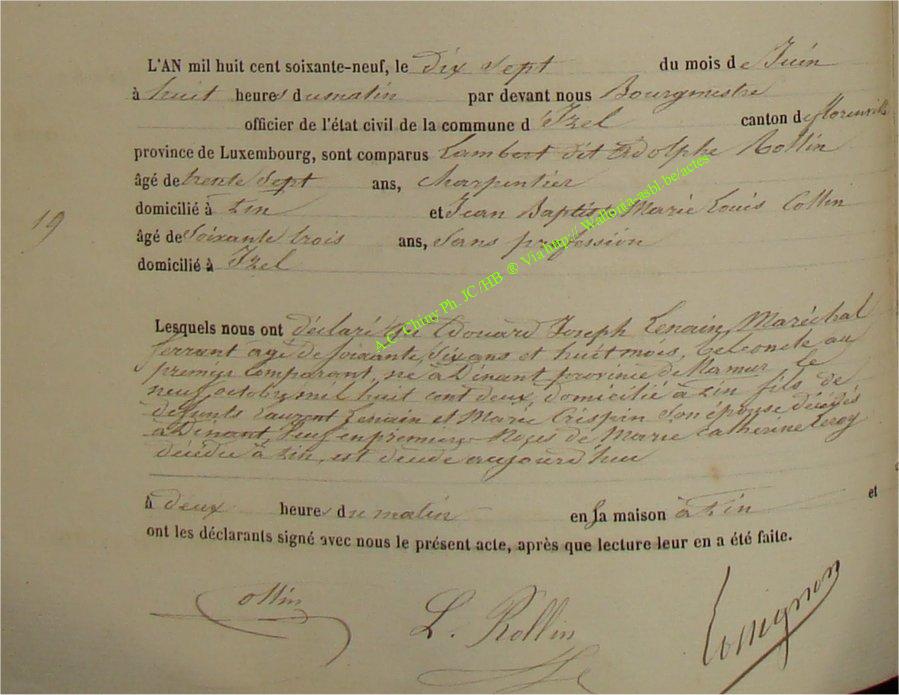 L'AN mil huit cent soixante-neuf, le dix sept du mois de Juin
à huit heures du matin par devant nous Bourgmestre
officier de l'état civil de la commune d'Izel canton de florenville
province de Luxembourg, sont comparus Lambert dit Adolphe Rollin
âgé de trente sept ans, charpentier
19
domicilié à Pin et Jean Baptiste Marie Louis Collin
âgé de Soixante trois ans, Sans profession
domicilié à Izel
A.C. Chiny Ph. JC /HB ® Via http:// Wallonia-asbl.be/actes
Lesquels nous ont déclaré que Edouard Joseph Lenain, Maréchal
ferrant agé de soixante Six ans et huit mois, bel oncle au
premier Comparant, né à Dinant province de Namur le
neuf octobre mil huit cent deux, domicilié à Pin fils de
défunts Laurent Lenain et Marie Crispin Son épouse décédés
à Dinant, Veuf en premieres Noces de Marie Catherine Leroy
décédée à Pin, est décédé aujourd'hui
à deux heures du matin en sa maison à Pin et
ont les déclarants signé avec nous le présent acte, après que lecture leur en a été faite.
Collin L. Rollin